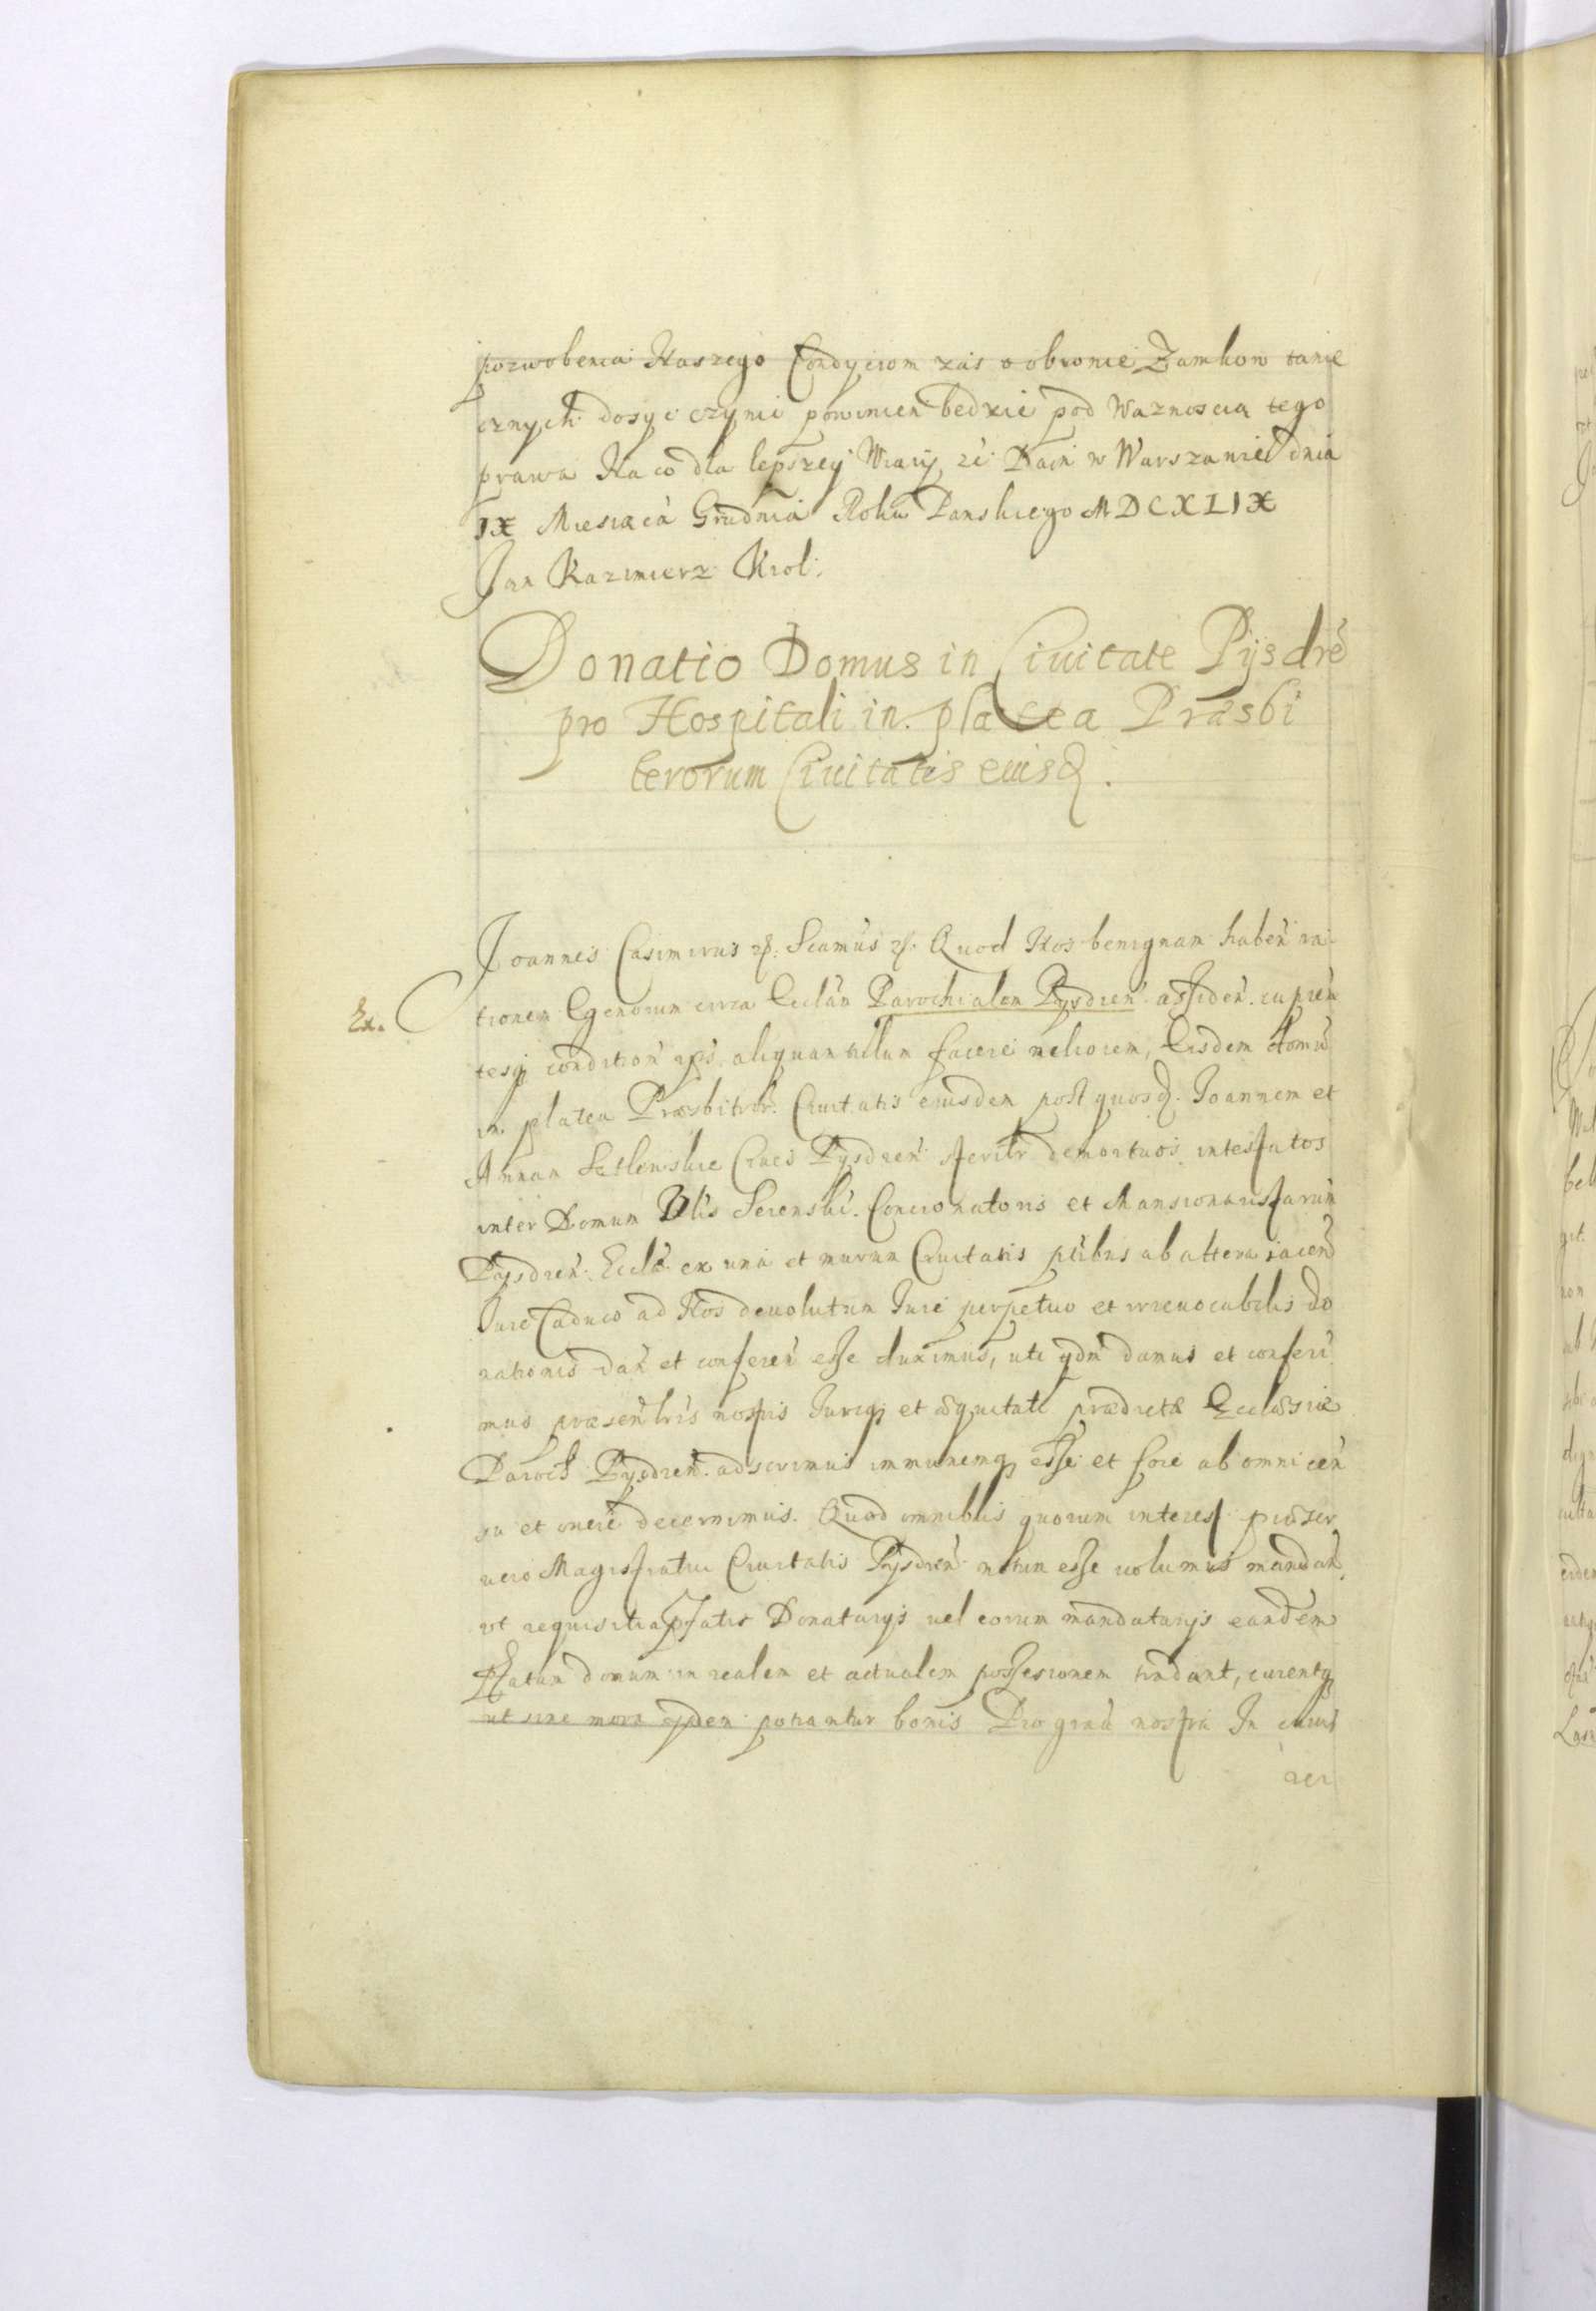 pozwolenia Naszego Condyciom zás o obronie Zamkow tame
cznych dosyc czynic powinien bedzie pod Waznoscią tego
prawa Na co dla lepszey Wiary, ec Dan w Warszawie dnia
IX Miesiąca Grudnia Roku Panskiego MDCXLIX
Jan Kazimierz Krol.
Donatio Domus in Ciuitate Pijsdrē
pro Hospitali in platea Præsbi
terorum Ciuitatis eiusd.
Joannes Casimirus etc. Scamus etc. Quod Nos benignam haben ra
Ex.
tionem Egenorum circa Ecclán Parochialem Pysdren assiden. cupien
tesq condition aliquantulum facere meliorem, Eisdem domu
in platea Præsbitror. Ciuitatis eiusdem post quosd. Joannem et
Annam Ciues Pysdren sterilr demortuos intestatos
inter Domum Concionatoris et Mansionaristarum
Pysdren Eccla ex una et murum Ciuitatis ptibus ab altera iacen
Jure Caduco ad Nos deuolutum Jure perpetuo et irreuocabilis do
nationis dan et conferen esse duximus, uti qdm damus et conferi
mus præsentbris nostris Juriq et æquitati prædictæ Ecclæsiæ
Paroch Pysdren. adscrimus immunemq esse et fore ab omni cen
su et onere decernimus. Quod omnibus quorum interest præser
Magistratui Ciuitatis Pysdren notum esse uolumus mandan
vt requisitia Donatarijs uel eorum mandatarijs eandem
domum in realem et actualem possessionem tradant, curentq
ut sine mora potiantur bonis Pro gratia nostra In cuius
rei